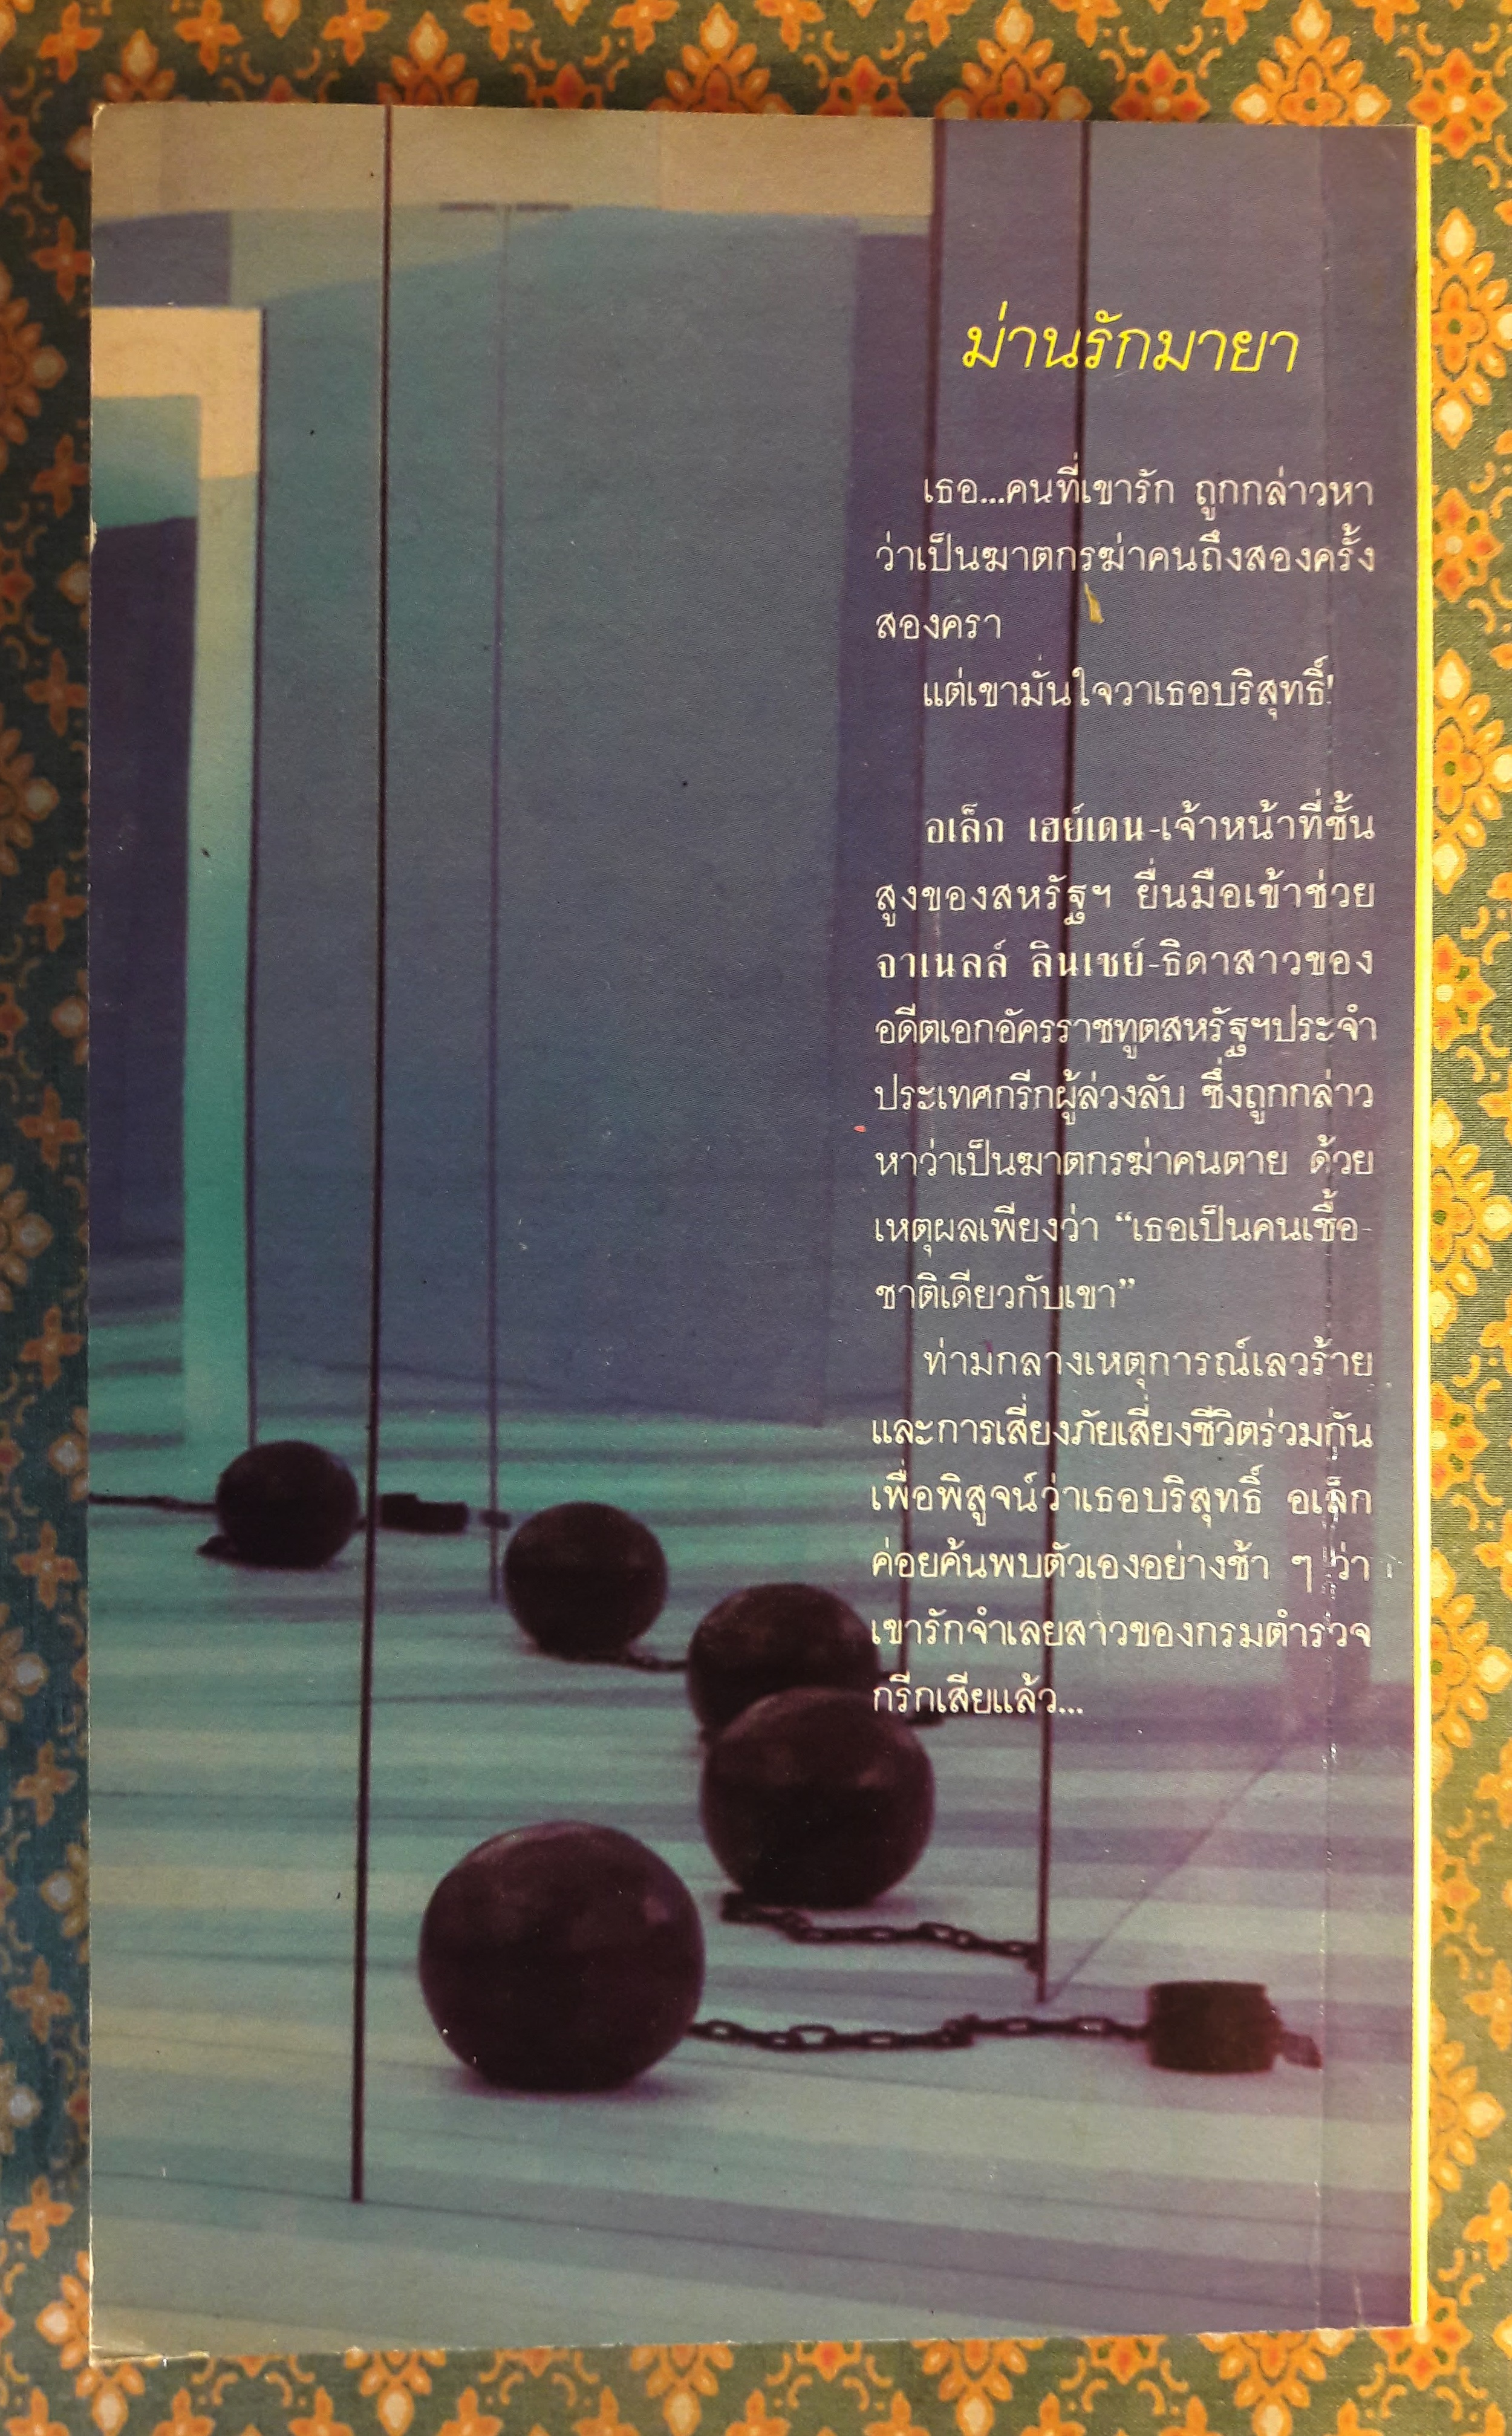 ม่านรักมายา
เธอ...คนที่เขารัก ถูกกล่าวหา
ว่าเป็นฆาตกรฆ่าคนถึงสองครั้ง
สองครา
แต่เขามั่นใจวาเธอบริสุทธิ์!
อเล็ก เฮย์เดน-เจ้าหน้าที่ชั้น
สูงของสหรัฐฯ ยื่นมือเข้าช่วย
จาเนลล์ ลินเซย์-ธิดาสาวของ
อดีตเอกอัครราชทูตสหรัฐฯประจำ
ประเทศกรีกผู้ล่วงลับ ซึ่งถูกกล่าว
หาว่าเป็นฆาตกรฆ่าคนตาย ด้วย
เหตุผลเพียงว่า “เธอเป็นคนเชื้อ-
ชาติเดียวกับเขา”
ท่ามกลางเหตุการณ์เลวร้าย
และการเสี่ยงภัยเสี่ยงชีวิตร่วมกัน
เพื่อพิสูจน์ว่าเธอบริสุทธิ์ อเล็ก
ค่อยค้นพบตัวเองอย่างช้า ๆ ว่า
เขารักจำเลยสาวของกรมตำรวจ
กรีกเสียแล้ว...